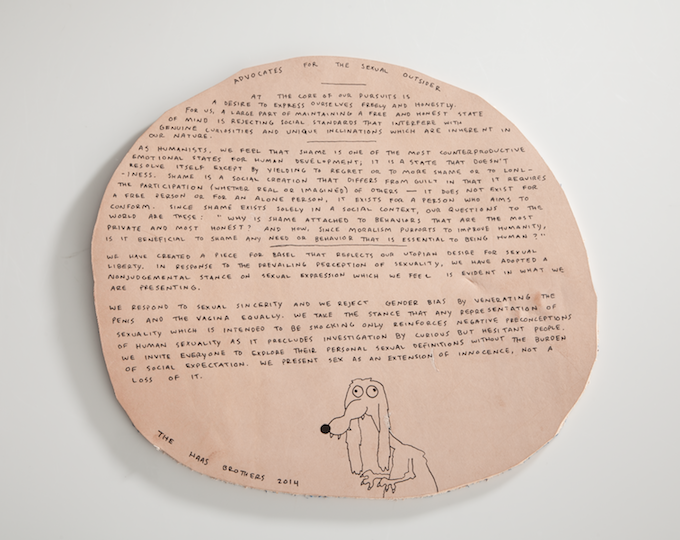 ADVOCATES FOR THE SEXUAL OUTSIDER
AT THE CORE OF OUR PURSUITS IS
A DESIRE TO EXPRESS OURSELVES FREELY AND HONESTLY.
FOR US, A LARGE PART OF MAINTAINING A FREE AND HONEST STATE
OF MIND IS REJECTING SOCIAL STANDARDS THAT INTERFERE WITH
GENUINE CURIOSITIES AND UNIQUE INCLINATIONS WHICH ARE INHERENT IN
OUR NATURE.
AS HUMANISTS, WE FEEL THAT SHAME IS ONE OF THE MOST COUNTERPRODUCTIVE
EMOTIONAL STATES FOR HUMAN DEVELOPMENT; IT IS A STATE THAT DOESN'T
RESOLVE ITSELF EXCEPT BY YIELDING TO REGRET OR TO MORE SHAME OR TO LONEL-
-INESS. SHAME IS A SOCIAL CREATION THAT DIFFERS FROM GUILT IN THAT IT REQUIRES
THE PARTICIPATION (WHETHER REAL OR IMAGINED) OF OTHERS — IT DOES NOT EXIST FOR
A FREE PERSON OR FOR AN ALONE PERSON, IT EXISTS FOR A PERSON WHO AIMS TO
CONFORM. SINCE SHAME EXISTS SOLELY IN A SOCIAL CONTEXT, OUR QUESTIONS TO THE
WORLD ARE THESE: "WHY IS SHAME ATTACHED TO BEHAVIORS THAT ARE THE MOST
PRIVATE AND MOST HONEST? AND HOW, SINCE MORALISM PURPORTS TO IMPROVE HUMANITY,
IS IT BENEFICIAL TO SHAME ANY NEED OR BEHAVIOR THAT IS ESSENTIAL TO BEING HUMAN?"
WE HAVE CREATED A PIECE FOR BASEL THAT REFLECTS OUR UTOPIAN DESIRE FOR SEXUAL
LIBERTY. IN RESPONSE TO THE PREVAILING PERCEPTION OF SEXUALITY, WE HAVE ADOPTED A
NONJUDGEMENTAL STANCE ON SEXUAL EXPRESSION WHICH WE FEEL IS EVIDENT IN WHAT WE
ARE PRESENTING.
WE RESPOND TO SEXUAL SINCERITY AND WE REJECT GENDER BIAS BY VENERATING THE
PENIS AND THE VAGINA EQUALLY. WE TAKE THE STANCE THAT ANY REPRESENTATION OF
SEXUALITY WHICH IS INTENDED TO BE SHOCKING ONLY REINFORCES NEGATIVE PRECONCEPTIONS
OF HUMAN SEXUALITY AS IT PRECLUDES INVESTIGATION BY CURIOUS BUT HESITANT PEOPLE.
WE INVITE EVERYONE TO EXPLORE THEIR PERSONAL SEXUAL DEFINITIONS WITHOUT THE BURDEN
OF SOCIAL EXPECTATION. WE PRESENT SEX AS AN EXTENSION OF INNOCENCE, NOT A
LOSS OF IT.
THE HAAS BROTHERS 2014